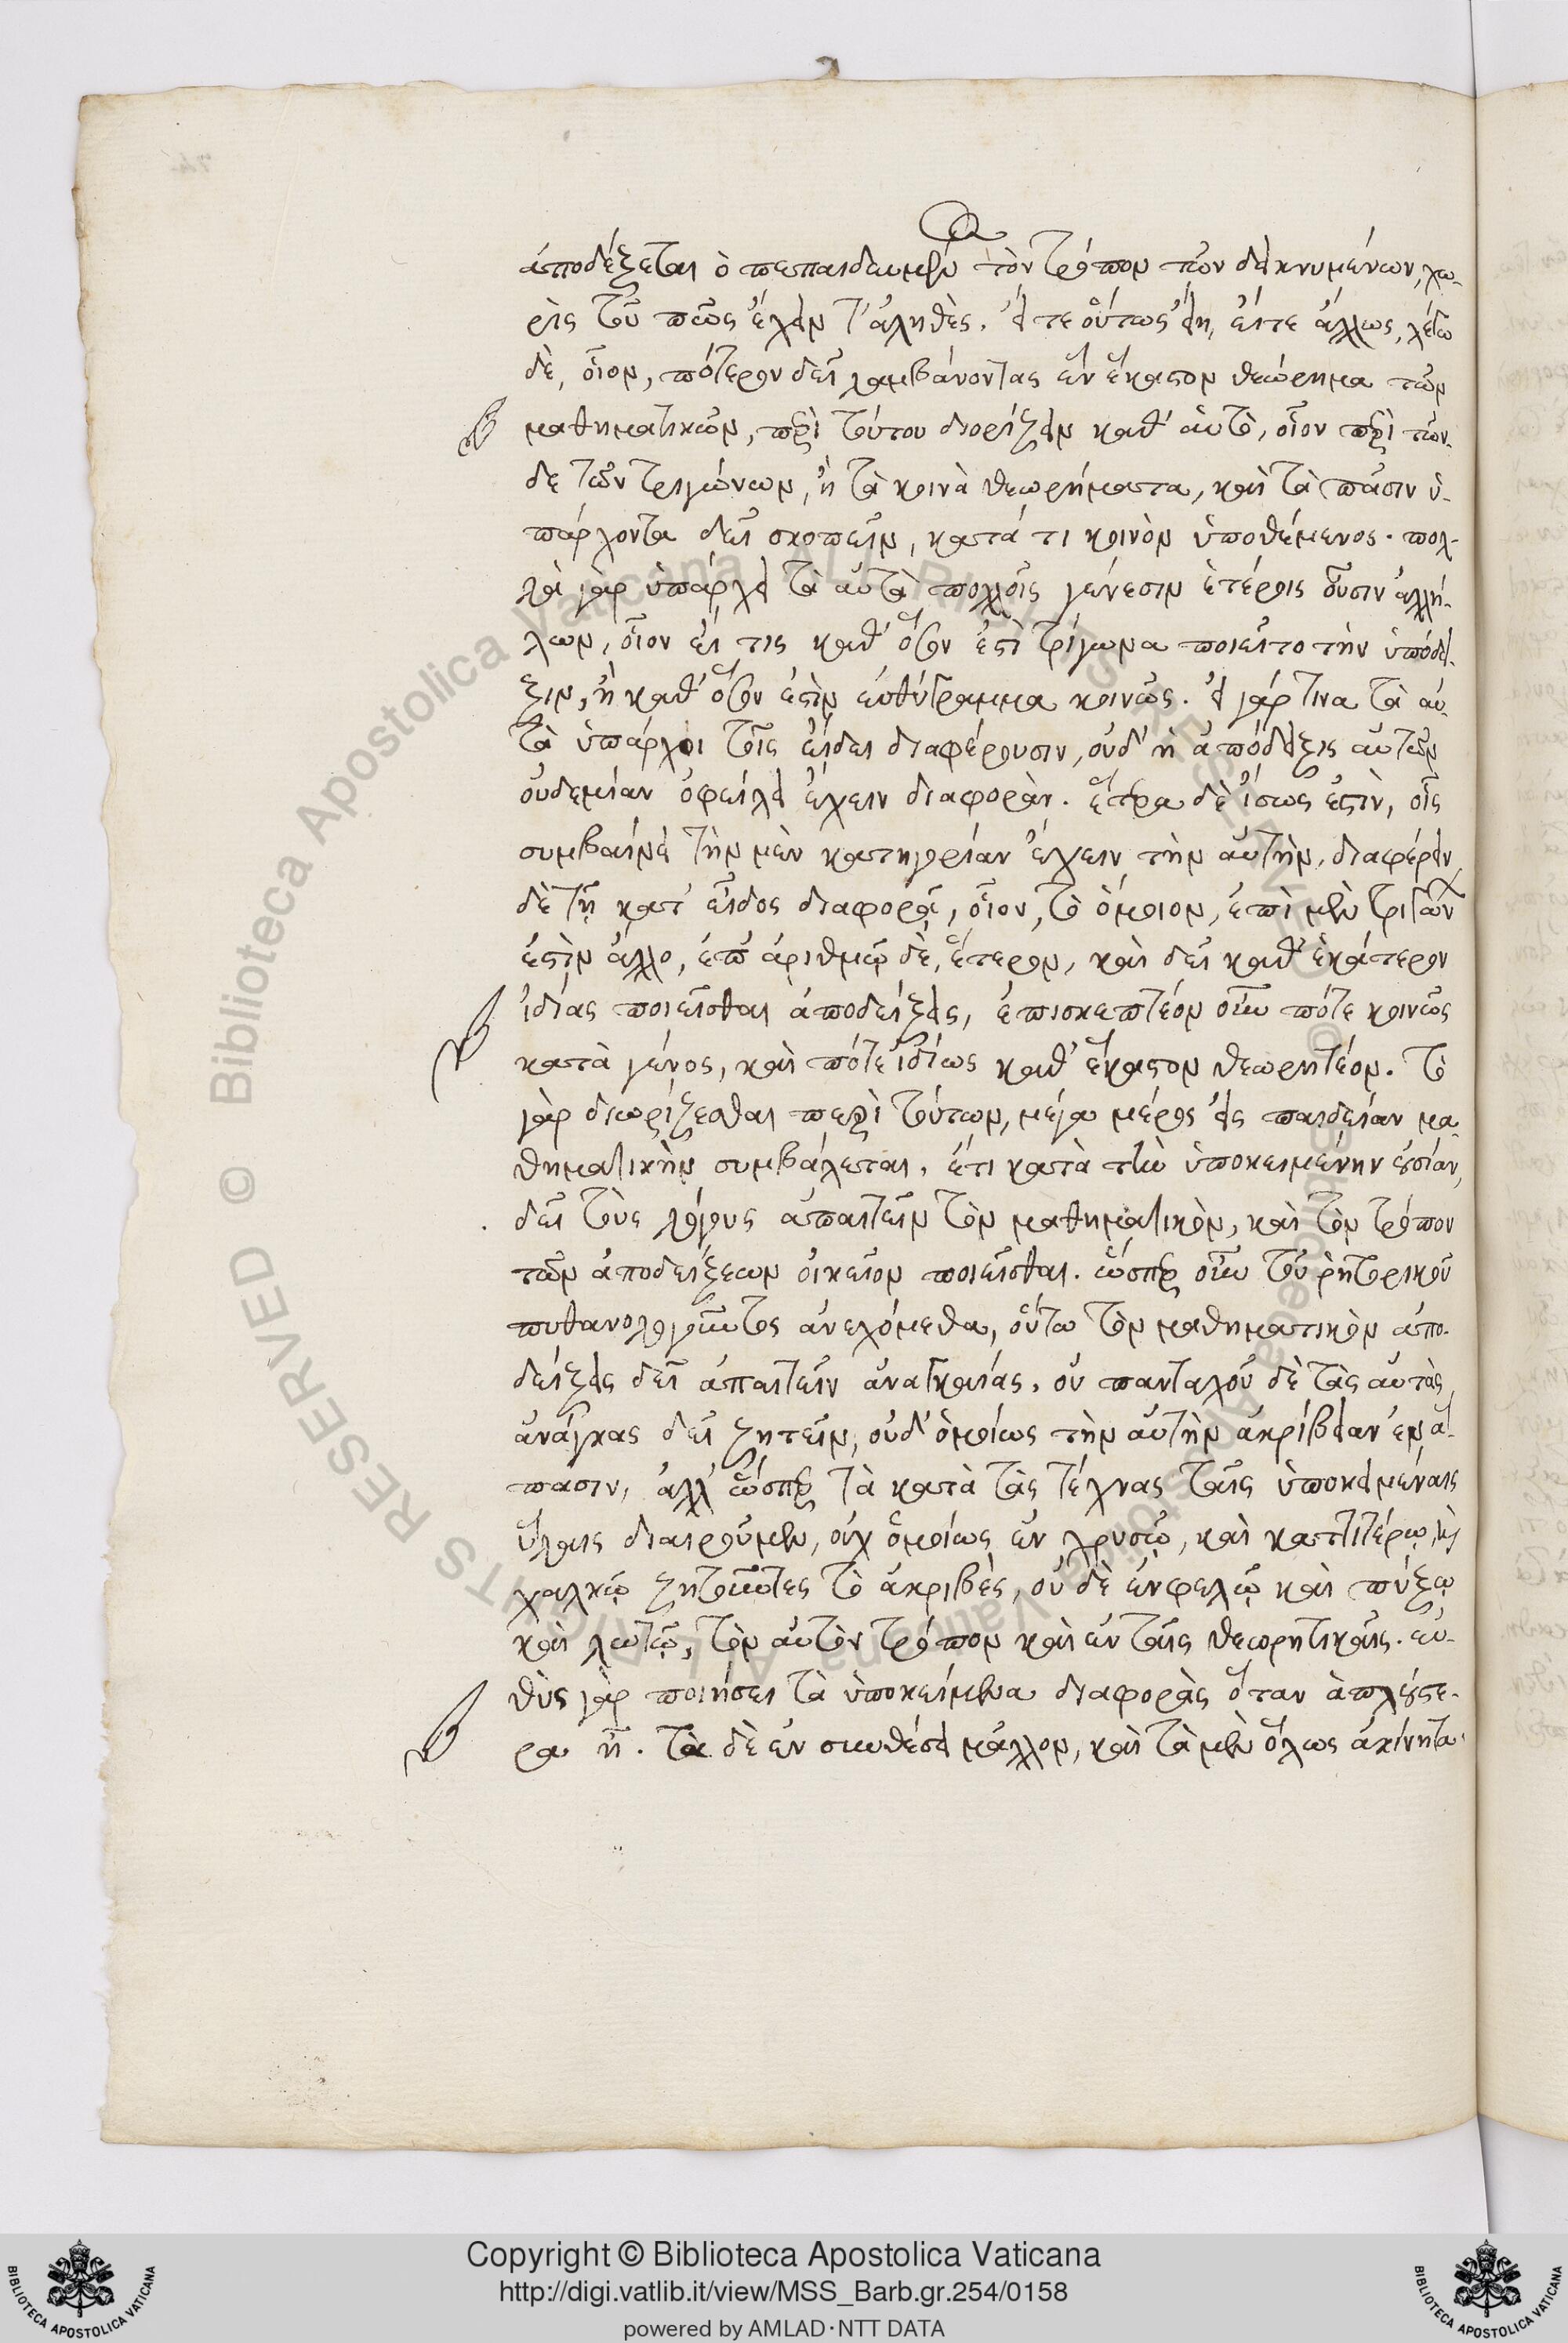 ἀποδέξεται ὁ πεπαιδευμὲν τὸν τρόπον τῶν δεικνυμένων, χω-
ρὶς τοῦ πῶς ἔχειν τ' ἀληθὲς. εἴτε οὕτως εἴη, εἴτε ἄλλως, λέγω
δὲ, οἷον, πότερον δεῖ λαμβάνοντας ἓν ἕκαστον θεώρημα τῶν
μαθηματικῶν, περὶ τούτου διορίζειν καθ' αὑτὸ, οἷον περὶ τῶν-
δε τῶν τριγώνων, ἢ τὰ κοινὰ θεωρήματα, καὶ τὰ πᾶσιν ὑ-
πάρχοντα δεῖ σκοπεῖν, κατά τι κοινὸν ὑποθέμενος. πολ-
λὰ γὰρ ὑπάρχει τὰ αὐτὰ πολλοῖς γένεσιν ἑτέροις οὖσιν ἀλλή-
λων, οἷον εἴ τις καθ' ὅσον ἐστὶ τρίγωνα ποιεῖτο τὴν ὑπόδει-
ξιν, ἢ καθ' ὅσον ἐστὶν εὐθύγραμμα κοινῶς. εἰ γάρ τινα τὰ αὐ-
τὰ ὑπάρχοι τοῖς εἴδει διαφέρουσιν, οὐδ' ἡ ἀπόδειξις αὐτῶν
οὐδεμίαν ὀφείλει ἔχειν διαφοράν. ἕτερα δὲ ἴσως ἐστὶν, οἷς
συμβαίνει τὴν μὲν κατηγορίαν ἔχειν τὴν αὐτὴν, διαφέρειν
δὲ τῇ κατ' εἶδος διαφορᾷ, οἷον, τὸ ὅμοιον, ἐπὶ μὲν τριγών
ἐστὶν ἄλλο, ἐπ' ἀριθμῷ δὲ, ἕτερον, καὶ δεῖ καθ' ἑκάτερον
ἰδίας ποιεῖσθαι ἀποδείξεις, ἐπισκεπτέον οὖν πότε κοινῶς
κατὰ γένος, καὶ πότε ἰδίως καθ' ἕκαστον θεωρητέον. τὸ
γὰρ διωρίζεσθαι περὶ τούτων, μέγα μέρος εἰς παιδείαν μα-
θηματικὴν συμβάλεται. ἔτι κατὰ τὴν ὑποκειμένην οὐσίαν,
δεῖ τοὺς λόγους ἀπαιτεῖν τὸν μαθηματικὸν, καὶ τὸν τρόπον
τῶν ἀποδείξεων οἰκεῖον ποιεῖσθαι. ὥσπερ οὖν τοῦ ῥητορικοῦ
πυθανολογοῦντος ἀνεχόμεθα, οὕτω τὸν μαθηματικὸν ἀπο-
δείξεις δεῖ ἀπαιτεῖν ἀναγκαίας. οὐ πανταχοῦ δὲ τὰς αὐτὰς
ἀνάγκας δεῖ ζητεῖν, οὐδ' ὁμοίως τὴν αὐτὴν ἀκρίβειαν ἐν ἅ-
πασιν, ἀλλ' ὥσπερ τὰ κατὰ τὰς τέχνας ταῖς ὑποκειμέναις
ὕλαις διαιροῦμεν, οὐχ ὁμοίως ἐν χρυσῷ, καὶ καττιτέρῳ, καὶ
χαλκῷ ζητοῦντες τὸ ἀκριβὲς, οὐ δὲ ἐν φελῷ καὶ πύξῳ
καὶ λωτῷ, τὸν αὐτὸν τρόπον καὶ ἐν ταῖς θεωρητικαῖς. εὐ-
θὺς γὰρ ποιήσει τὰ ὑποκείμενα διαφορὰς ὅταν ἁπλούστε-
ρα ᾖ. τὰ δὲ ἐν συνθέσει μᾶλλον, καὶ τὰ μὲν ὅλως ἀκίνητα.
Copyright © Biblioteca Apostolica Vaticana
http://digi.vatlib.it/view/MSS_Barb.gr.254/0158
powered by AMLAD·NTT DATA